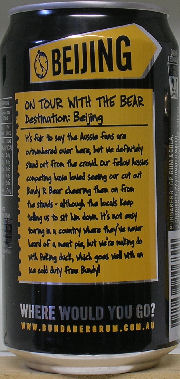 BEIJING
ON TOUR WITH THE BEAR
Destination: Beijing
It's fair to say the Aussie fans are
outnumbered over here, but we definitely
stand out from the crowd. Our fellow Aussies
competing have loved seeing our cut out
Bundy R Bear cheering them on from
the stands - although the locals keep
telling us to sit him down. It's not easy
touring in a country where they've never
heard of a meat pie, but we're making do
with Peking duck, which goes well with an
ice cold duty free Bundy!
WHERE WOULD YOU GO?
WWW.BUNDABERGRUM.COM.AU